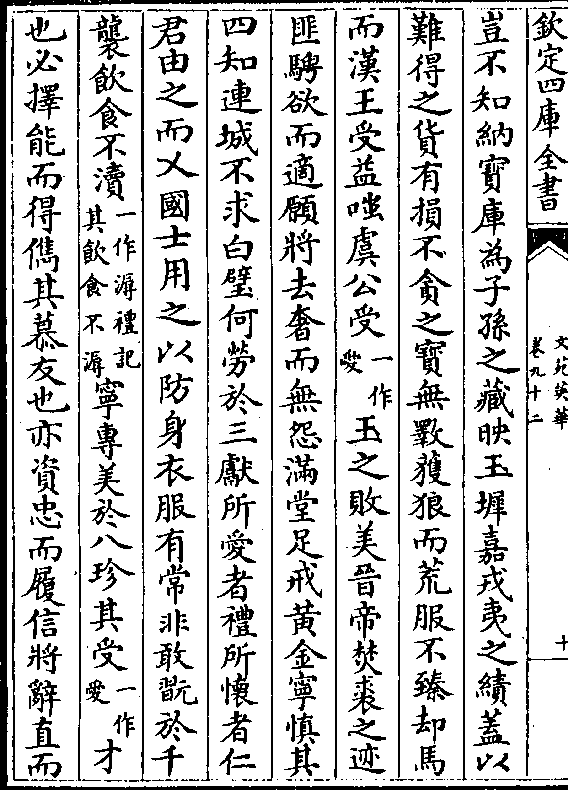 欽定四庫全書
文苑英華
卷九十二
十
豈不知納寶庫為子孫之藏映玉墀嘉戎夷之績蓋以
難得之貨有損不貪之寶無斁獲狼而荒服不臻却馬
而漢王受益嗤虞公受一作愛玉之敗美晉帝焚裘之迹
匪騁欲而適願將去奢而無怨滿堂足戒黃金寧慎其
四知連城不求白璧何勞於三獻所愛者禮所懷者仁
君由之而乂國士用之以防身衣服有常非敢翫於千
襲飲食不瀆一作溽禮記其飲食不溽寧專美於八珍其受一作愛才
也必擇能而得儁其慕友也亦資忠而履信將辭直而